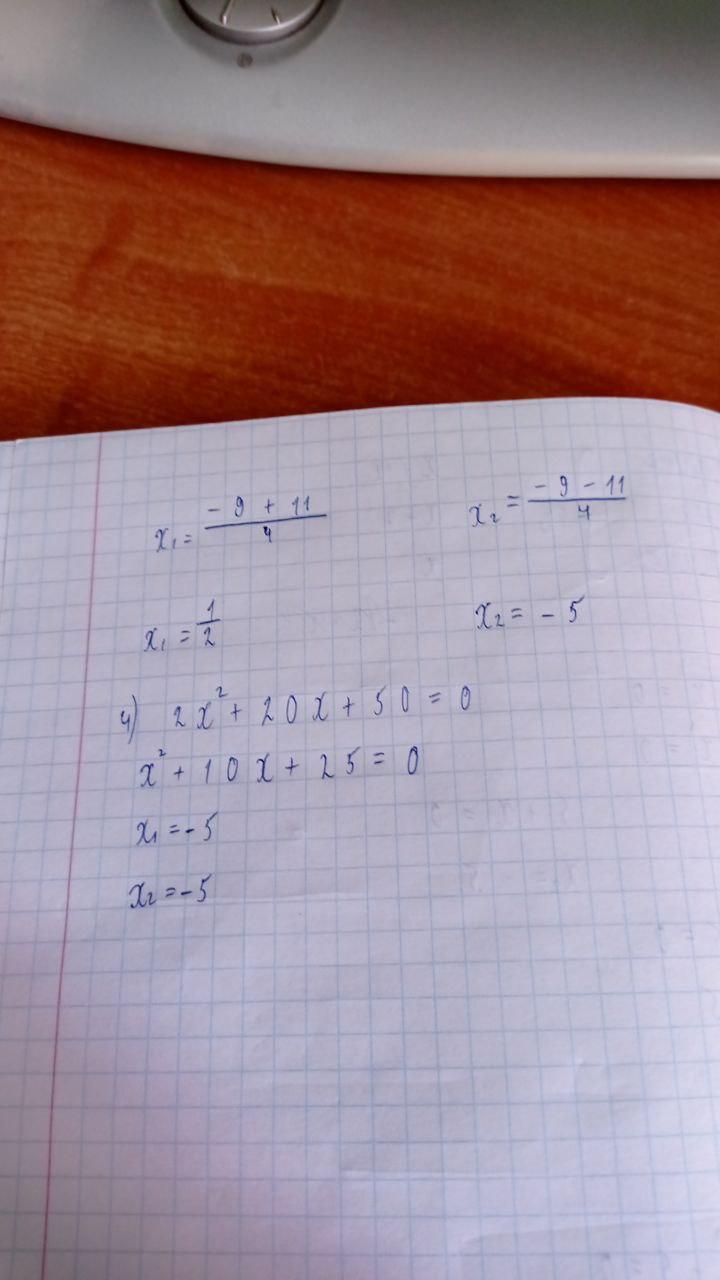 x₁ = (- 9 + 11)/4    x₂ = (- 9 - 11)/4
x₁ = 1/2    x₂ = - 5
4) 2x² + 20x + 50 = 0
x² + 10x + 25 = 0
x₁ = -5
x₂ = -5